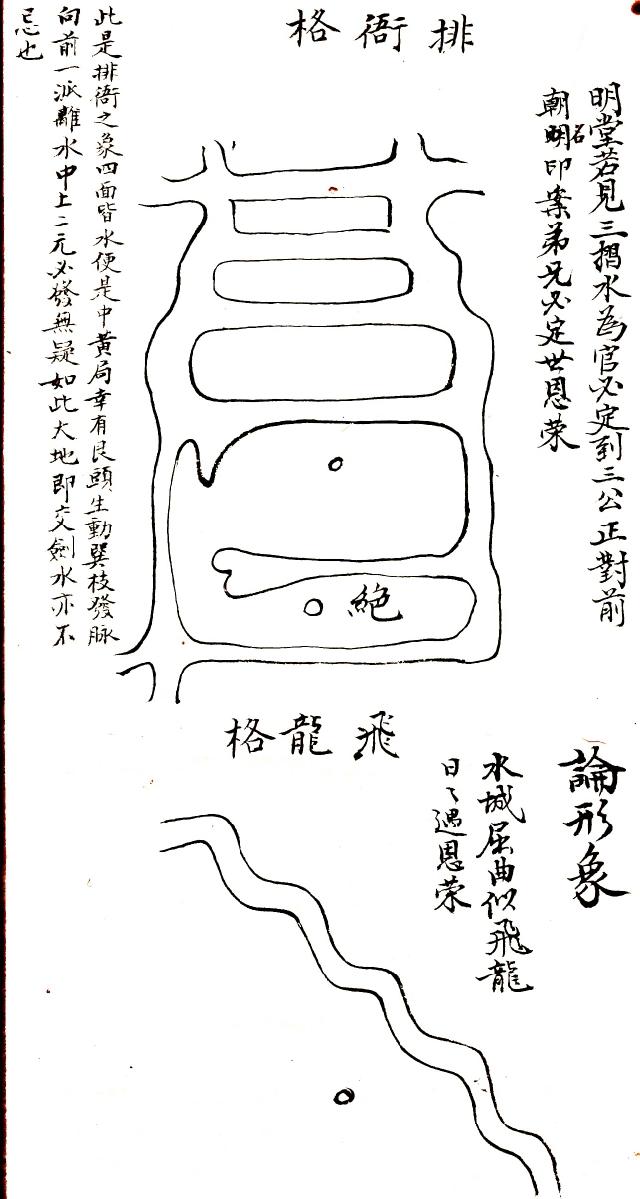 排衙格
明堂若見三摺水為官必定到三公正對前
朝明堂印案弟兄必定世恩荣
絕
此是排衙之象四面皆水便是中黄局幸有艮頭生動巽枝發脉
向前一派離水中上二元必發無疑如此大地即交劍水亦不
忌也
飛龍格
論形象
水城屈曲似飛龍
日々遇恩荣